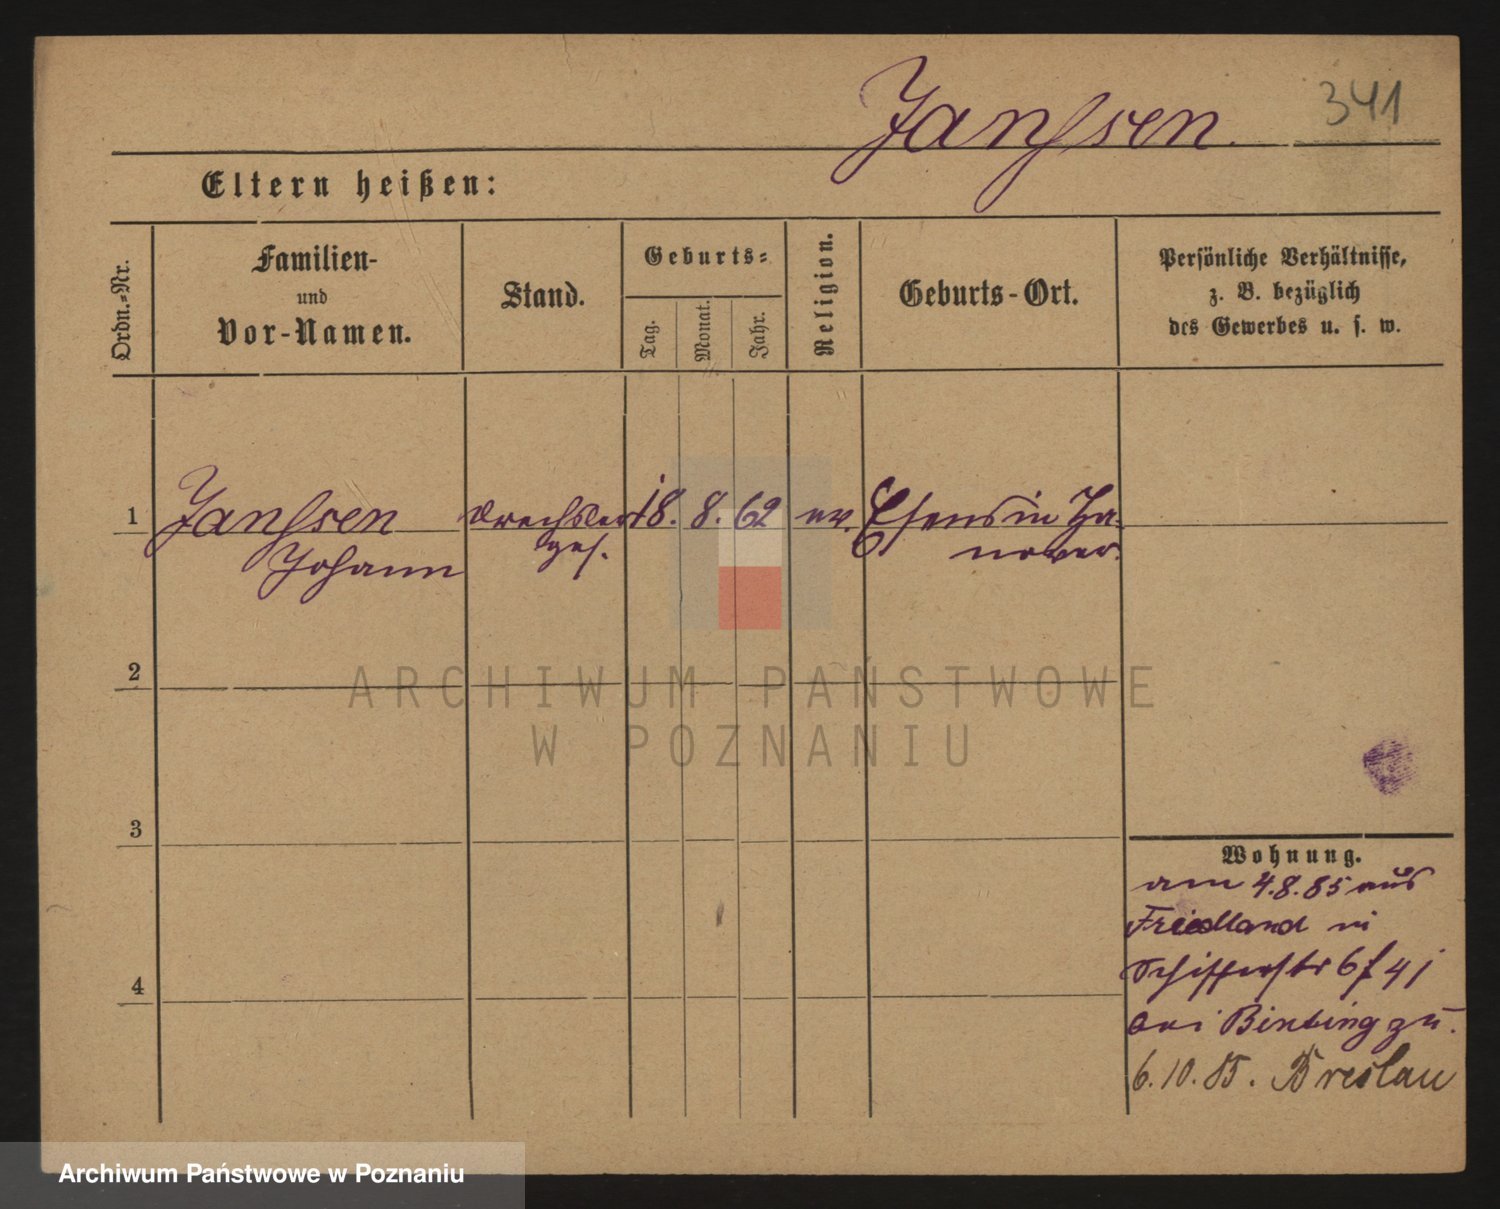 Janssen.
341
Eltern heißen:
Ordn.=Nr.
Familien-
und
Vor-Namen.
Stand.
Geburts=
Tag.
Monat.
Jahr.
Religion.
Geburts-Ort.
Persönliche Verhältnisse,
z. B. bezüglich
des Gewerbes u. s. w.
1 Janssen Drechsler 18. 8. 62 ev. Esens in Ha-
Johann ges. nover.
2
3
4
Wohnung.
am 4.8.85 aus
Friedland in
Schifferstr 6
bei Binting zu.
6.10.85. Breslau
ARCHIWUM PAŃSTWOWE
W POZNANIU
Archiwum Państwowe w Poznaniu